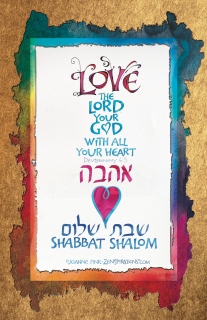 LOVE
THE
LORD
YOUR
GOD
WITH ALL
YOUR HEART
Deuteronomy 6:5
אהבה
שבת שלום
SHABBAT SHALOM
©JOANNE FINK·ZENSPIRATIONS.COM